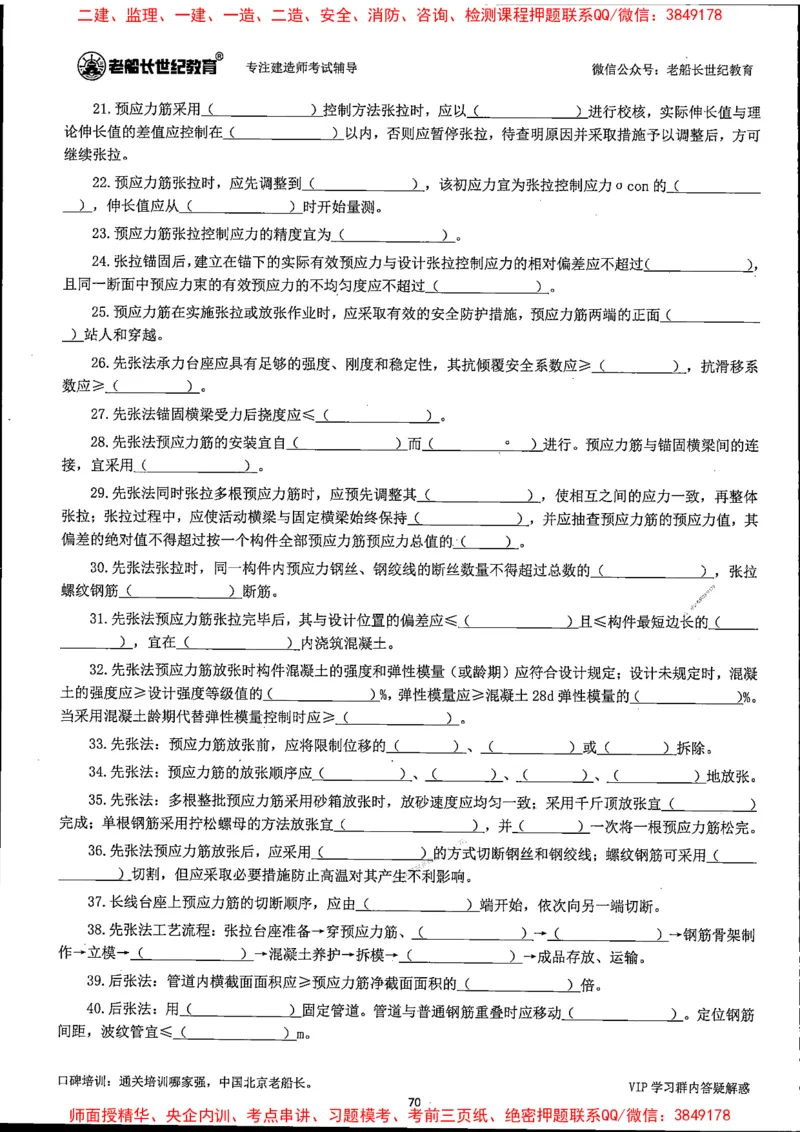 二建、监理、一建、一造、二造、安全、消防、咨询、检测课程押题联系QQ/微信：3849178
老船长世纪教育® 专注建造师考试辅导 微信公众号：老船长世纪教育
21.预应力筋采用（ ）控制方法张拉时，应以（ ）进行校核，实际伸长值与理
论伸长值的差值应控制在（ ）以内，否则应暂停张拉，待查明原因并采取措施予以调整后，方可
继续张拉。
22.预应力筋张拉时，应先调整到（ ），该初应力宜为张拉控制应力σcon的（
），伸长值应从（ ）时开始量测。
23.预应力筋张拉控制应力的精度宜为（ ）。
24.张拉锚固后,建立在锚下的实际有效预应力与设计张拉控制应力的相对偏差应不超过（ ），
且同一断面中预应力束的有效预应力的不均匀度应不超过（ ）。
25.预应力筋在实施张拉或放张作业时，应采取有效的安全防护措施，预应力筋两端的正面（
）站人和穿越。
26.先张法承力台座应具有足够的强度、刚度和稳定性，其抗倾覆安全系数应≥（ ），抗滑移系
数应≥（ ）。
27.先张法锚固横梁受力后挠度应≤（ ）。
28.先张法预应力筋的安装宜自（ ）而（ ）进行。预应力筋与锚固横梁间的连
接，宜采用（ ）。
29.先张法同时张拉多根预应力筋时，应预先调整其（ ），使相互之间的应力一致，再整体
张拉；张拉过程中，应使活动横梁与固定横梁始终保持（ ），并应抽查预应力筋的预应力值，其
偏差的绝对值不得超过按一个构件全部预应力筋预应力总值的（ ）。
30.先张法张拉时，同一构件内预应力钢丝、钢绞线的断丝数量不得超过总数的（ ），张拉
螺纹钢筋（ ）断筋。
31.先张法预应力筋张拉完毕后，其与设计位置的偏差应≤（ ）且≤构件最短边长的（
），宜在（ ）内浇筑混凝土。
32.先张法预应力筋放张时构件混凝土的强度和弹性模量（或龄期）应符合设计规定；设计未规定时，混凝
土的强度应≥设计强度等级值的（ ）%，弹性模量应≥混凝土28d弹性模量的（ ）%。
当采用混凝土龄期代替弹性模量控制时应≥（ ）。
33.先张法：预应力筋放张前，应将限制位移的（ ）、（ ）或（ ）拆除。
34.先张法：预应力筋的放张顺序应（ ）、（ ）、（ ）、（ ）地放张。
35.先张法：多根整批预应力筋采用砂箱放张时，放砂速度应均匀一致；采用千斤顶放张宜（ ）
完成；单根钢筋采用拧松螺母的方法放张宜（ ），并（ ）一次将一根预应力筋松完。
36.先张法预应力筋放张后，应采用（ ）的方式切断钢丝和钢绞线；螺纹钢筋可采用（
）切割，但应采取必要措施防止高温对其产生不利影响。
37.长线台座上预应力筋的切断顺序，应由（ ）端开始，依次向另一端切断。
38.先张法工艺流程：张拉台座准备→穿预应力筋、（ ）→（ ）→钢筋骨架制
作→立模→（ ）→混凝土养护→拆模→（ ）→成品存放、运输。
39.后张法：管道内横截面面积应≥预应力筋净截面面积的（ ）倍。
40.后张法：用（ ）固定管道。管道与普通钢筋重叠时应移动（ ）。定位钢筋
间距，波纹管宜≤（ ）m。
口碑培训：通关培训哪家强，中国北京老船长。 VIP学习群内答疑解惑
70
师面授精华、央企内训、考点串讲、习题模考、考前三页纸、绝密押题联系QQ/微信：3849178